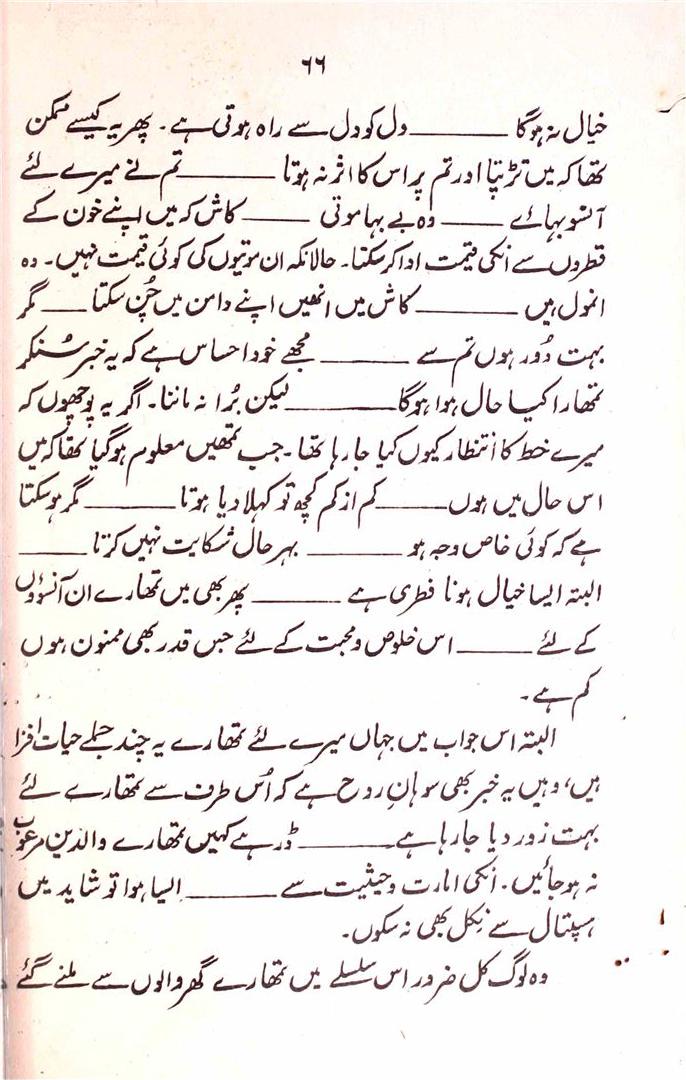 ۶۶
خیال نہ ہوگا ــــــــ دل کو دل سے راہ ہوتی ہے۔ پھر یہ کیسے ممکن
تھا کہ میں تڑپتا اور تم پر اس کا اثر نہ ہوتا ــــــــ تم نے میرے لئے
آنسو بہائے ــــــــ وہ بے بہا موتی ــــــــ کاش کہ میں اپنے خون کے
قطروں سے انکی قیمت ادا کر سکتا۔ حالانکہ ان موتیوں کی کوئی قیمت نہیں۔ وہ
انمول ہیں ــــــــ کاش میں انھیں اپنے دامن میں چُن سکتا ــــــــ مگر
بہت دُور ہوں تم سے ــــــــ مجھے خود احساس ہے کہ یہ خبر سُنکر
تمھارا کیا حال ہوا ہوگا ــــــــ لیکن بُرا نہ ماننا۔ اگر یہ پوچھوں کہ
میرے خط کا انتظار کیوں کیا جا رہا تھا۔ جب تمھیں معلوم ہوگیا تھا کہ میں
اس حال میں ہوں ــــــــ کم از کم کچھ تو کہلا دیا ہوتا ــــــــ مگر ہو سکتا
ہے کہ کوئی خاص وجہ ہو ــــــــ بہر حال شکایت نہیں کرتا ــــــــ
البتہ ایسا خیال ہونا فطری ہے ــــــــ پھر بھی میں تمھارے ان آنسوؤں
کے لئے ــــــــ اس خلوص و محبت کے لئے جس قدر بھی ممنون ہوں
کم ہے۔
البتہ اس جواب میں جہاں میرے لئے تمھارے یہ چند جملے حیات افزا
ہیں، وہیں یہ خبر بھی سوہانِ روح ہے کہ اُس طرف سے تمھارے لئے
بہت زور دیا جا رہا ہے ــــــــ ڈر ہے کہیں تمھارے والدین مرعوب
نہ ہو جائیں۔ انکی امارت و حیثیت سے ــــــــ ایسا ہوا تو شاید میں
ہسپتال سے نکل بھی نہ سکوں۔
وہ لوگ کل ضرور اس سلسلے میں تمھارے گھر والوں سے ملنے گئے